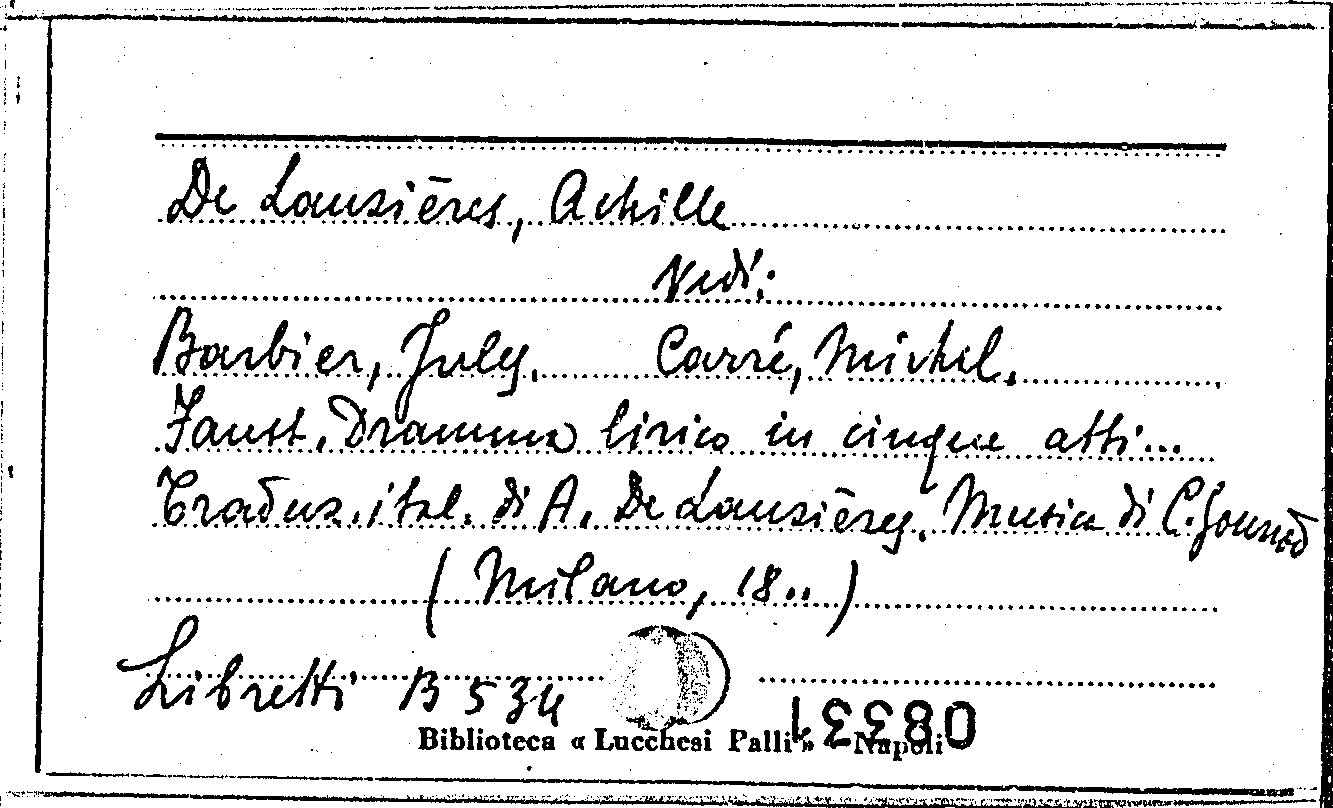 De Lauzières, Achille
Vedi:
Barbier, Jules. Carré, Michel.
Faust. Dramma lirico in cinque atti...
Traduz. ital. di A. De Lauzières. Musica di C. Gounod
(Milano, 18..)
Libretti B 534
08331
Biblioteca « Lucchesi Palli » Napoli